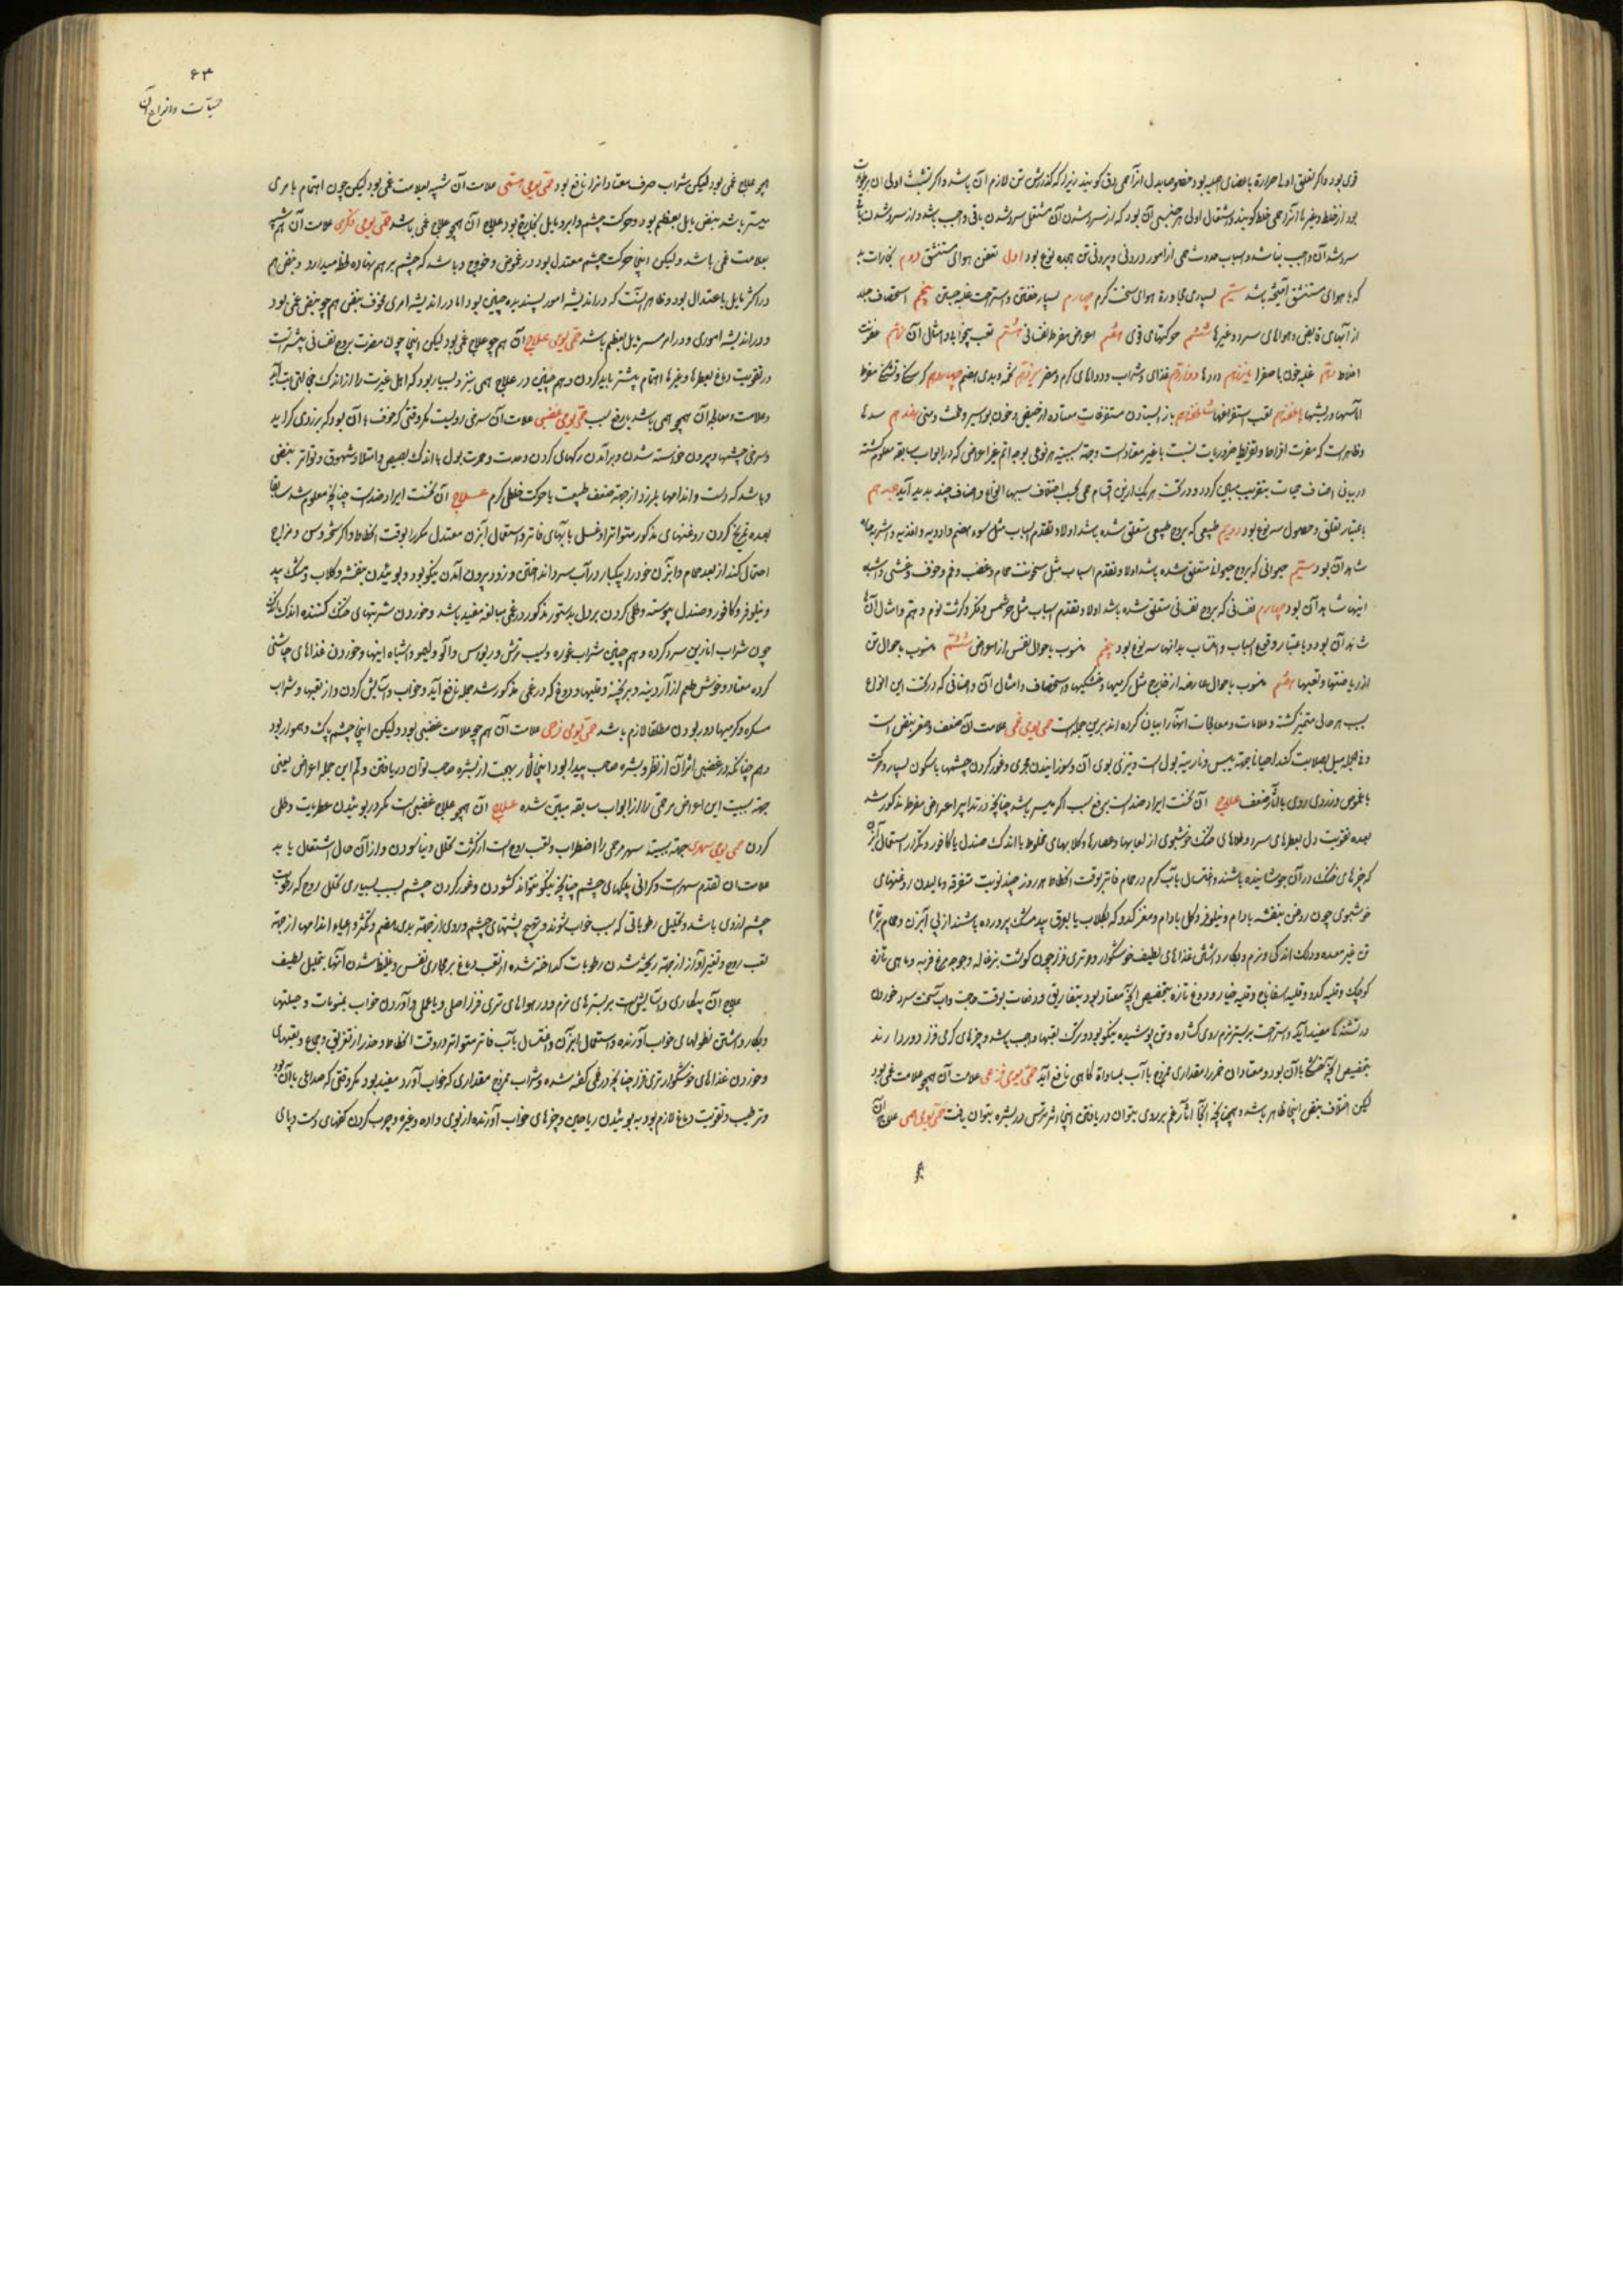 قوی بود و اگر تعلق اولی حرارة با عضای اصلیه بود خصوصا بدل انرا حمی دق کویند زیرا که کدازش تن لازم آن باشد و اگر تشبث اولی ان برطوبات
بود از خلط و غیرها آنرا حمی خلط کویند و اشتعال اولی هر جنسی آن بود که از سرد شدن آن مشتعل سرد شدن باقی واجب باشد و از سرد شدن باقی
سرد شدن آن واجب نباشد و اسباب حدوث حمی از امور درونی و بیرونی تن هجده نوع بود اول تعفن هوای مستنشق دوم بخارات بد
که با هوای مستنشق آمیخته باشد سیم بسیاری مجاورة هوای سخت کرم چهارم بسیار خفتن و استراحت پنجم استحصاف جلد
از آبهای قابض و هواهای سرد و غیرها ششم حرکتهای قوی هفتم اعراض مفرط نفسانی هشتم تعب بیخوابی و امثال آن نهم عفونت
اخلاط دهم غلبه خون یا صفرا یازدهم دردها دوازدهم غذای و شراب و دواهای کرم و مضر سیزدهم تخمه و بدی هضم چهاردهم کرسنگی و تشنگی مفرط
اماسها و ریشها پانزدهم تعب استفراغها شانزدهم باز ایستادن مستفرغات معتاده از حیض و خون بواسیر و طمث و منی هفدهم سدها
و ظاهر است که مضرت افراط و تفریط ضروریات نسبت با غیر معتاد است و جهة سببیة هر نوعی بوجه اتم غیر اعراضی که در ابواب سابقه معلوم کشته
در بیان اصناف حمیات بتقریب مبین کردد و در تحت هر یک ازین اقسام حمی بحسب اختلاف سببها انواع و اصناف چند پدید آید
باعتبار تعلق و حصول سه نوع بود دویم طبیعی که بروح طبیعی متعلق شده باشد اولا و تقدم اسباب مثل سوء هضم و ادویه و اغذیه و اشربه حاره
شاهد آن بود سیم حیوانی که بروح حیوانی متعلق شده باشد اولا و تقدم اسباب مثل سخونت حمام و غضب و غم و خوف و غشی و اشباه
اینها شاهد آن بود چهارم نفسانی که بروح نفسانی متعلق شده باشد اولا و تقدم اسباب مثل حر شمس و فکر و کثرت نوم و هم و امثال آنها
شاهد آن بود و باعتبار وقوع اسباب و انتساب بدانها سه نوع بود پنجم منسوب باحوال نفس از اعراض ششم منسوب باحوال تن
از ریاضتها و تعبها هفتم منسوب باحوال عارضه از خارج مثل کرمیها و خشکیها و استحصاف و امثال آن و اصنافی که در تحت این انواع
بسبب هر حالی متمیز کشته و علامات و معالجات آنها را بیان کرده اند برین جمله است حمی یومی غمی علامت آن ضعف و صغر نبض است
و فی الجمله میل بصلابت کند احیانا بجهة یبس و ناریة بول است و تیزی بوی آن و سوزانیدن مجری و غور کردن چشمها با سکون بسیار و حرکت
با غموض و زردی روی با آثار ضعف علاج آن نخست ایراد ضد است برفع سبب اکر میسر باشد چنانچه در تدابیر اعراض مفرط مذکور شد
بعده تقویت دل بعطرهای سرد و طلاهای خنک خوشبوی از لعابها و عصارها و کلابهای مخلوط با اندک صندل یا کافور و تکرار استعمال آبزن
که چیزهای خنک در آن جوشانیده باشند و اغتسال بآب کرم در حمام فاتر بوقت انحطاط هر روز چند نوبت متفرقه و مالیدن روغنهای
خوشبوی چون روغن بنفشه بادام و نیلوفر و کل بادام و مغز کدو که بکلاب یا بعرق بید مشک پرورده باشند از پی آبزن و حمام
تن غیر معده و دلک اندکی و نرم و بکار داشتن غذاهای لطیف خوشکوار و تری فزا چون کوشت بزغاله و جوجه مرغ فربه و ماهی تازه
کوچک و قلیه کدو و قلیه اسفاناخ و قلیه خیار و دوغ تازه بتخصیص آنچه معتاد بود بتفاریق و دفعات بوقت حاجت و آب سخت سرد خوردن
در تشنکی مفید آید و استراحت بر بستر نرم روی کشاده و تن پوشیده نیکو بود و ترک تعبها واجب باشد و چیزهای کرمی فزا دور دارند
بتخصیص آنچه خشکی با آن بود و معتادان خمر را مقداری ممزوج با آب بمساواة کاهی نافع آید حمی یومی فزعی علامت آن همچو علامت غمی بود
لیکن اختلاف نبض اینجا ظاهر باشد و همچنانچه آنجا آثار غم بر روی بتوان دریافتن اینجا اثر ترس در بشره بتوان یافت حمی یومی همی علاج آن
۶۳
حمیات و انواع آن
همچو علاج غمی بود لیکن شراب صرف معتاد انرا نافع بود حمی یومی همتی علامت آن شبیه بعلامت غمی بود لیکن چون اهتمام بامری
بیشتر باشد نبض مایل بعظم بود و حرکت چشم و ابرو مایل بخارج بود علاج آن همچو علاج غمی باشد حمی یومی فکری علامت آن هم شبیه
بعلامت غمی باشد ولیکن اینجا حرکت چشم معتدل بود در غوض و خروج و باشد که چشم بر هم نهاده لحظه میدارد و نبض هم
در اکثر مایل باعتدال بود و ظاهر آنست که در اندیشه امور پسندیده چنین بود اما در اندیشه امری مخوف نبض هم چو نبض غمی بود
و در اندیشه اموری و در امر مسر مایل بعظم باشد حمی یومی علاج آن هم چو علاج غمی بود لیکن اینجا چون مضرت بروح نفسانی بیشتر است
در تقویت دماغ بعطرها و غیرها اهتمام بیشتر باید کردن و هم چنین در علاج همی نیز و بسیار بود که اهل غیرت را از اندک خجالتی تب آید
و علامت و معالجه آن همچو همی باشد با رفع سبب حمی یومی غضبی علامت آن سرخی رویست مکر وقتی که خوف با آن بود که بزردی کراید
و سرخی چشمها و بیرون خواسته شدن و برآمدن رکهای کردن و حدت و حمرت بول با اندک بصیص و امتلا و شهوق و تواتر نبض
و باشد که دست و اندامها بلرزد از جهة ضعف طبیعت یا حرکت خلطی کرم علاج آن نخست ایراد ضد است چنانچه معلوم شد سابقا
بعده تمریخ کردن روغنهای مذکور متواتر و غسل بابهای فاتر و استعمال آبزن معتدل مکررا بوقت انحطاط و اکر سحنه و سن و مزاج
احتمال کند از بعد حمام و آبزن خود را بیکبار در آب سرد انداختن و زود بیرون آمدن نیکو بود و بوئیدن بنفشه و کلاب و مشک بید
و نیلوفر و کافور و صندل پیوسته و طلی کردن بر دل بدستور مذکور در غمی مبالغه مفید باشد و خوردن شربتهای خنک کننده اندک اندک
چون شراب انارین سرد کرده و هم چنین شراب غوره و سیب ترش و ریواس و آلو و لیمو و اشباه اینها و خوردن غذاهای چاشنی
کرده معتاد و خوش طعم از آردینه و برنجینه و قلیها و دوغ که در غمی مذکور شد جمله نافع آید و خواب و آسایش کردن و از تعبها و شراب
مسکر و کرمیها دور بودن مطلقا لازم باشد حمی یومی فرحی علامت آن هم چو علامت غضبی بود ولیکن اینجا چشم پاک و هموار بود
و هم چنانکه در غضبی اثر آن از نظر و بشره صاحب پیدا بود اینجا آثار بهجت از بشره صاحب توان دریافتن و لم این جمله اعراض یعنی
جهة سببیت این اعراض مر حمی را از ابواب سابقه مبین شده علاج آن همچو علاج غضبی است مکر در بوئیدن عطریات و طلی
کردن حمی یومی سهری جهة سببیة سهر مر حمی را اضطراب و تعب روح است از کثرت تحلل و نیاسودن و از آن حال اشتعال یابد
علامت آن تقدم سهر است و کرانی پلکهای چشم چنانچه نیکو نتواند کشودن و غور کردن چشم بسبب بسیاری تحلل روح که رطوبت
چشم ازوی باشد و تحلیل رطوباتی که سبب خواب شوند و تهیج پشتهای چشم و روی از جهة بدی هضم و تکثر و اعیاء اندامها از جهة
تعب روح و تغیر آواز از جهة ریخته شدن رطوبات کداخته شده از تعب دماغ بر مجاری نفس و غلیظ شدن آنها بتحلیل لطیف
علاج آن بیکاری و آسایش است بر بسترهای نرم و در هواهای تری فزا اصلی و یا عملی و آوردن خواب بمنومات و حیلتها
و بکار داشتن نطولهای خواب آورنده و استعمال آبزن و اغتسال بآب فاتر متواتر در وقت انحطاط و حذر از تعریق و جماع و تعبهای
و خوردن غذاهای خوشکوار تری فزا چنانچه در غمی کفته شده و شراب ممزوج مقداری که خواب آورد مفید بود مکر وقتی که صداعی با آن بود
و ترطیب و تقویت دماغ لازم بود به بوئیدن ریاحین و چیزهای خواب آورنده از بوی داده و غیره و چرب کردن کفهای دست و پای